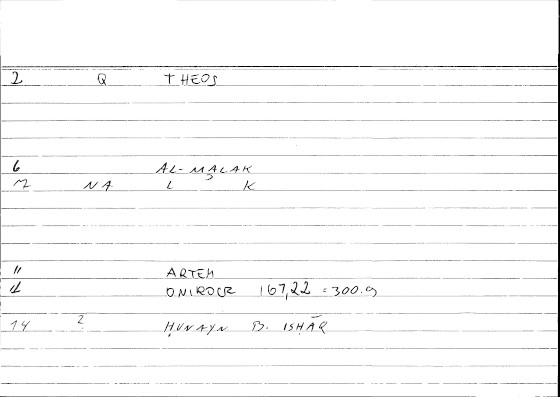 2 Q THEOS
6 AL-MALAK
M NA L K
" ARTEM
ONIROCR 167,22 = 300.9
14 2 ḤUNAYN B. ISḤĀQ